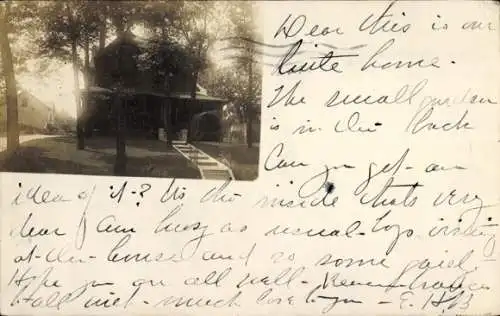 Dear this is our
little home.
The small garden
is in the back
Can you get an
idea of it? Its the inside thats very
dear I am busy as usual - boys visiting
at the house and so some
Hope you are all well - Remembrances
to all with much love to you - E. H. B